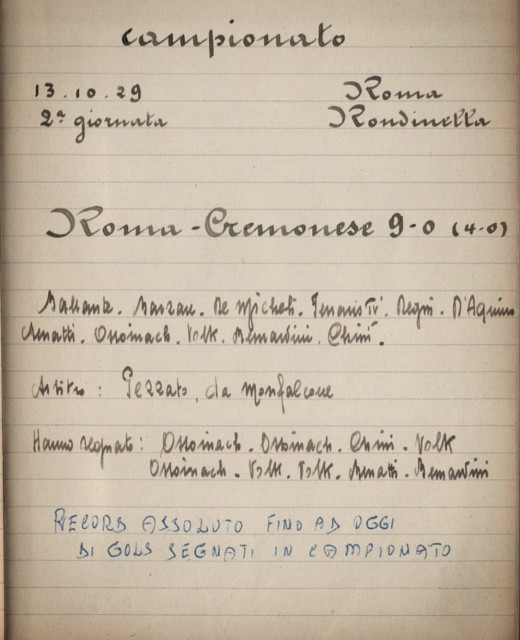 campionato
13.10.29 Roma
2ª giornata Rondinella
Roma - Cremonese 9-0 (4-0)
Ballante. Barzan. De Micheli. Ferraris IV. Degni. D'Aquino
Benatti. Ossoinach. Volk. Bernardini. Chini.
Arbitro: Pezzato, da Monfalcone
Hanno segnato: Ossoinach. Ossoinach. Chini. Volk
Ossoinach. Volk. Volk. Benatti. Bernardini
RECORD ASSOLUTO FINO AD OGGI
DI GOLS SEGNATI IN CAMPIONATO